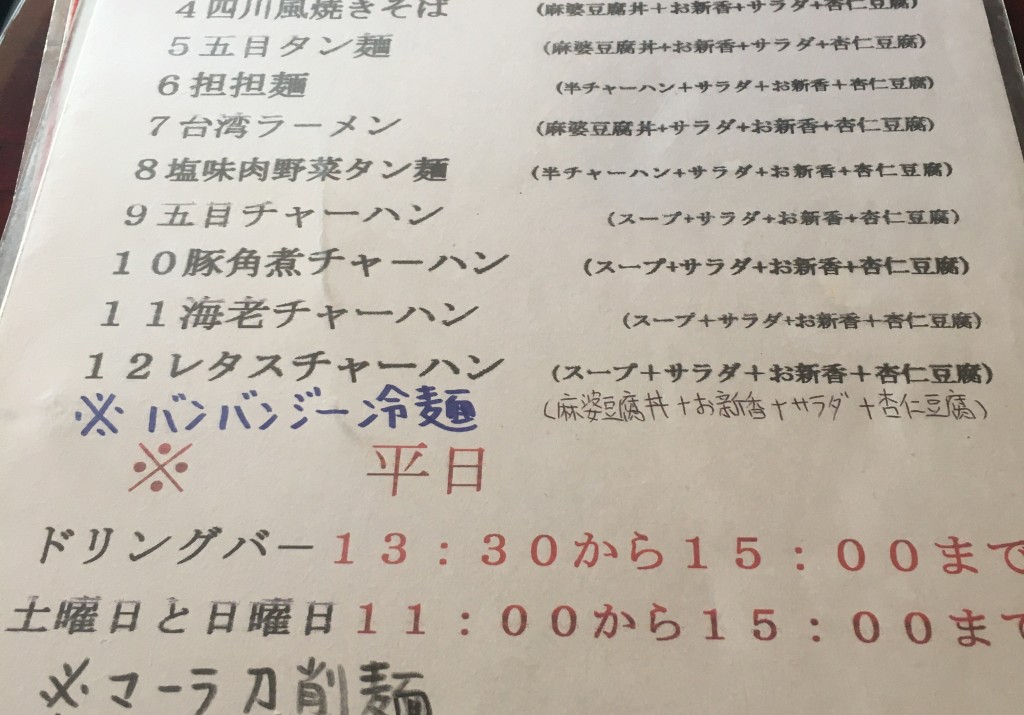 4四川風焼きそば (麻婆豆腐丼+お新香+サラダ+杏仁豆腐)
5五目タン麺 (麻婆豆腐丼+お新香+サラダ+杏仁豆腐)
6担担麺 (半チャーハン+サラダ+お新香+杏仁豆腐)
7台湾ラーメン (麻婆豆腐丼+サラダ+お新香+杏仁豆腐)
8塩味肉野菜タン麺 (半チャーハン+サラダ+お新香+杏仁豆腐)
9五目チャーハン (スープ+サラダ+お新香+杏仁豆腐)
10豚角煮チャーハン (スープ+サラダ+お新香+杏仁豆腐)
11海老チャーハン (スープ+サラダ+お新香+杏仁豆腐)
12レタスチャーハン (スープ+サラダ+お新香+杏仁豆腐)
※バンバンジー冷麺 (麻婆豆腐丼+お新香+サラダ+杏仁豆腐)
※ 平日
ドリングバー13:30から15:00まで
土曜日と日曜日11:00から15:00まで
※マーラ刀削麺